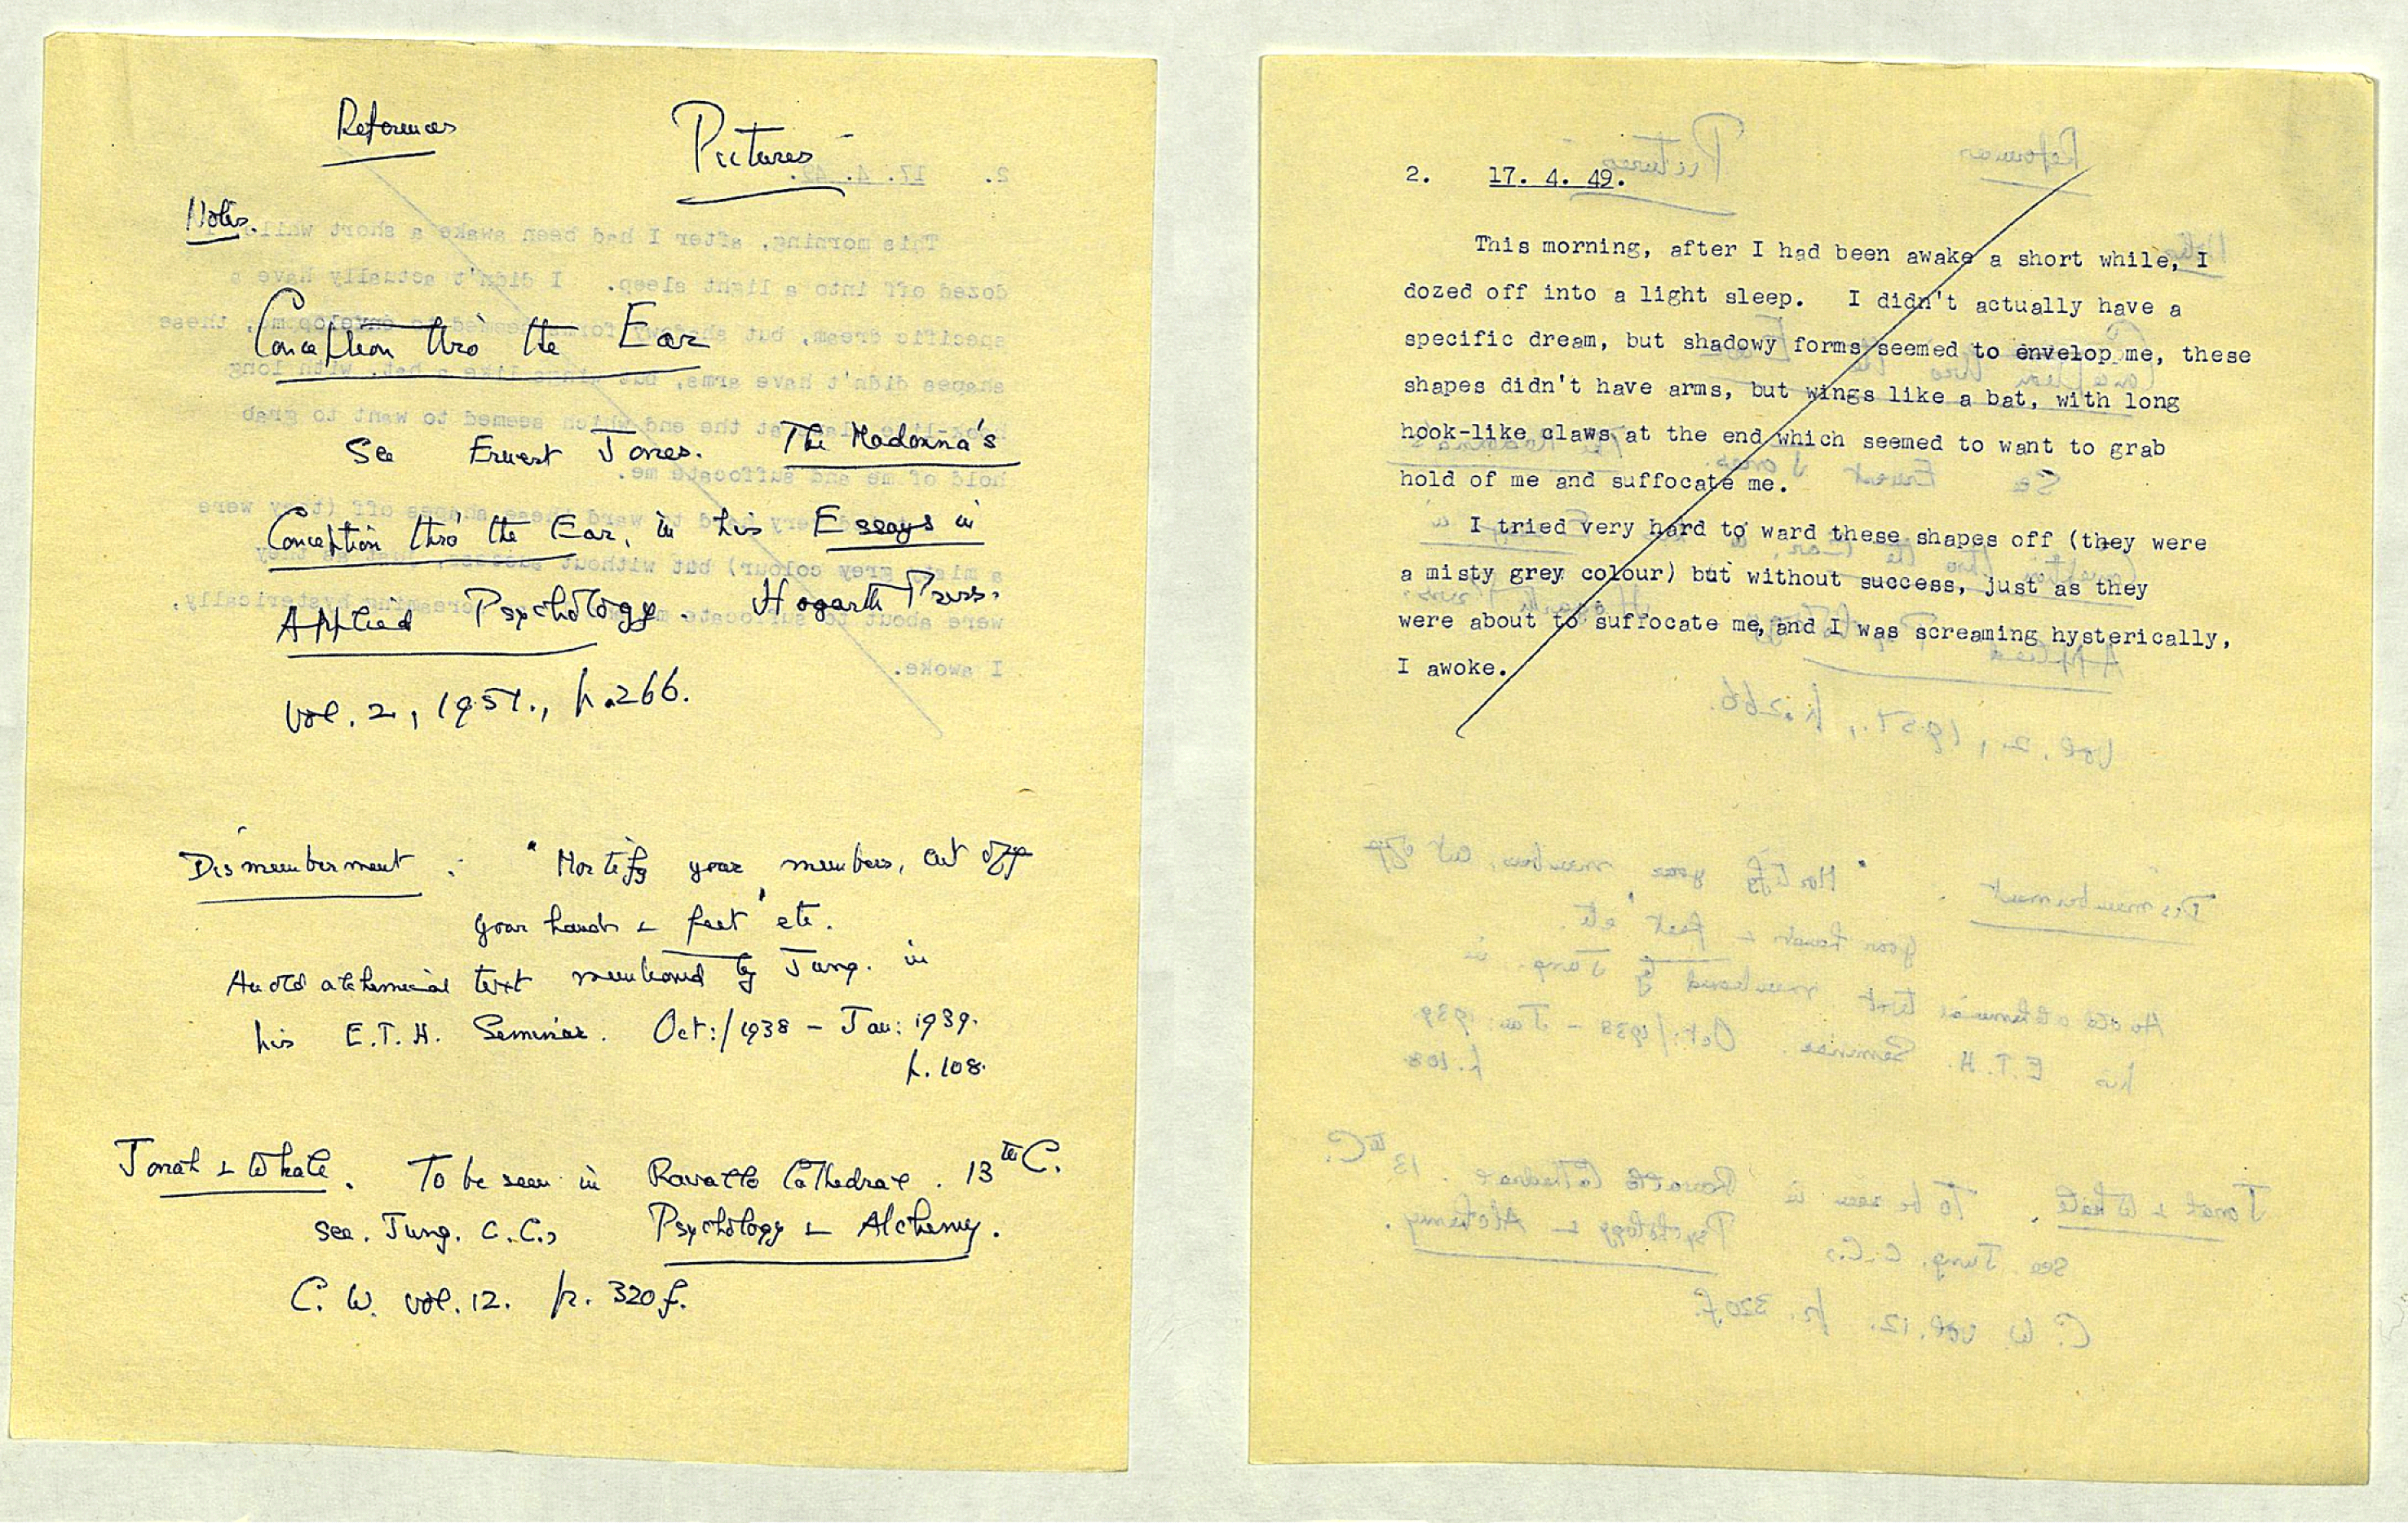 References
Pictures
Notes.
Conception thro' the Ear
See Ernest Jones. The Madonna's
Conception thro' the Ear, in his Essays in
Applied Psychology. Hogarth Press.
Vol. 2, 1951., p.266.
Dismemberment : "Mortify your members, cut off
your hands & feet" etc.
An old alchemical text mentioned by Jung. in
his E.T.H. Seminar. Oct:/1938 - Jan: 1939.
p. 108.
Jonah & Whale. To be seen in Ravello Cathedral. 13th C.
see. Jung. C.G., Psychology & Alchemy.
C. W. vol. 12. p. 320f.
2. 17. 4. 49.
This morning, after I had been awake a short while, I
dozed off into a light sleep. I didn't actually have a
specific dream, but shadowy forms seemed to envelop me, these
shapes didn't have arms, but wings like a bat, with long
hook-like claws at the end which seemed to want to grab
hold of me and suffocate me.
I tried very hard to ward these shapes off (they were
a misty grey colour) but without success, just as they
were about to suffocate me, and I was screaming hysterically,
I awoke.